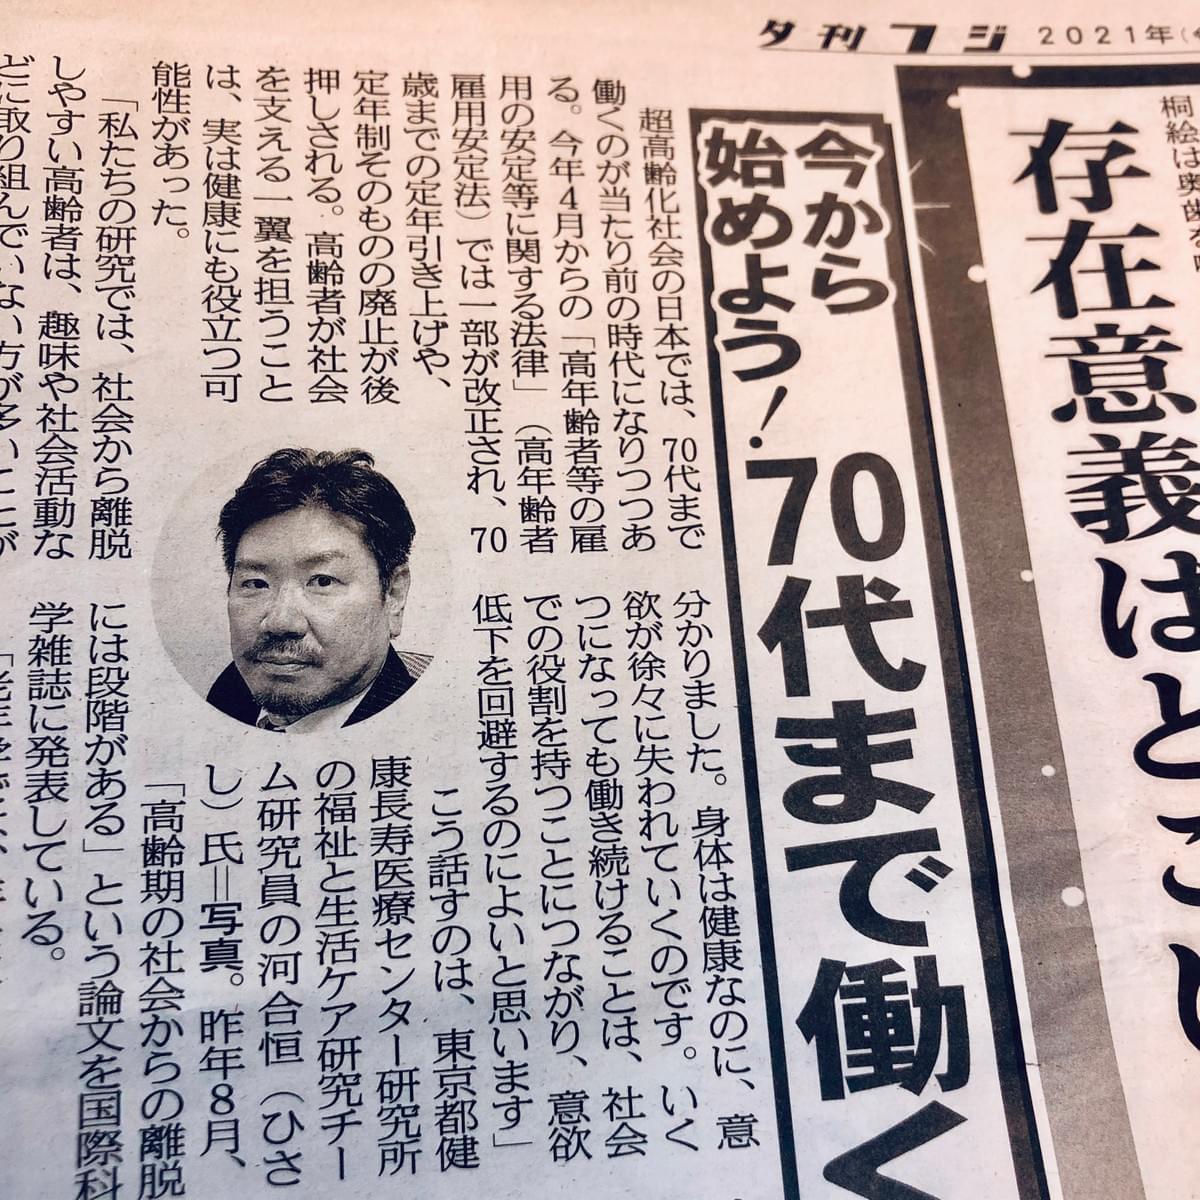 夕刊フジ 2021年(
桐絵は奥歯を
存在意義はどこい
今から
始めよう!
70代まで働く
超高齢化社会の日本では、70代まで
働くのが当たり前の時代になりつつあ
る。今年4月からの「高年齢者等の雇
用の安定等に関する法律」(高年齢者
雇用安定法)では一部が改正され、70
歳までの定年引き上げや、
定年制そのものの廃止が後
押しされる。高齢者が社会
を支える一翼を担うこと
は、実は健康にも役立つ可
能性があった。
「私たちの研究では、社会から離脱
しやすい高齢者は、趣味や社会活動な
どに取り組んでいない方が多いことが
分かりました。身体は健康なのに、意
欲が徐々に失われていくのです。いく
つになっても働き続けることは、社会
での役割を持つことにつながり、意欲
低下を回避するのによいと思います」
こう話すのは、東京都健
康長寿医療センター研究所
の福祉と生活ケア研究チー
ム研究員の河合恒(ひさ
し)氏=写真。昨年8月、
「高齢期の社会からの離脱
には段階がある」という論文を国際科
学雑誌に発表している。